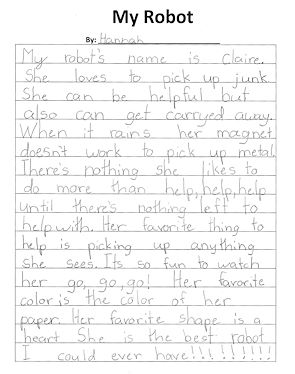 My Robot
By: Hannah
My robot's name is Claire.
She loves to pick up junk.
She can be helpful but
also can get carryed away.
When it rains her magnet
doesn't work to pick up metal.
There's nothing she likes to
do more than help, help, help
until there's nothing left to
help with. Her favorite thing to
help is picking up anything
she sees. Its so fun to watch
her go, go, go! Her favorite
color is the color of her
paper. Her favorite shape is a
heart She is the best robot
I could ever have!!!!!!!!